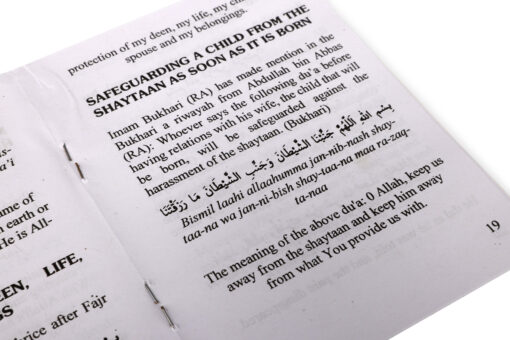 as-
a'i
ame of
earth or
He is All-
EEN, LIFE,
SS
brice after Fajr
protection of my deen, my life, my child
spouse and my belongings.
SAFEGUARDING A CHILD FROM THE
SHAYTAAN AS SOON AS IT IS BORN
Imam Bukhari (RA) has made mention in the
Bukhari a riwayah from Abdullah bin Abbas
(RA): Whoever says the following du'a before
having relations with his wife, the child that will
be born, will be safeguarded against the
harassment of the shaytaan. (Bukhari)
بِسْمِ اللهِ اَللّٰهُمَّ جَنِّبْنَا الشَّيْطَانَ وَجَنِّبِ الشَّيْطَانَ مَا رَزَقْتَنَا
Bismil laahi allaahumma jan-nib-nash shay-
taa-na wa jan-ni-bish shay-taa-na maa ra-zaq-
ta-naa
The meaning of the above du'a: 0 Allah, keep us
away from the shaytaan and keep him away
from what You provide us with.
19